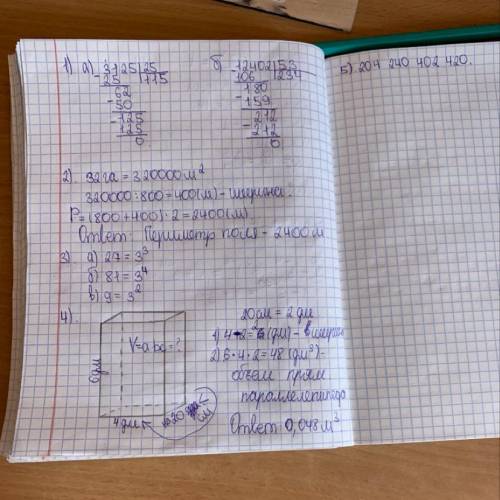 1) а) 3125 | 25
- 25 | 115
62
- 50
- 125
125
0
б) - 12402 | 53
106 | 234
- 180
- 159
- 212
- 212
0
2). 32 га = 320000 м²
320000 : 800 = 400 (м) - ширина.
P = (800 + 400) · 2 = 2400 (м)
Ответ: Периметр поля - 2400 м
3) а) 27 = 3³
б) 81 = 3⁴
в) 9 = 3²
4).
V = abc = ?
6 дм
4 дм
на 20
см
20 см = 2 дм
1) 4 2 = 6 (дм) -
2) 6 · 4 · 2 = 48 (дм³) -
объем прям
параллелепипеда
Ответ 0,048 м³
5) 204 240 402 420.